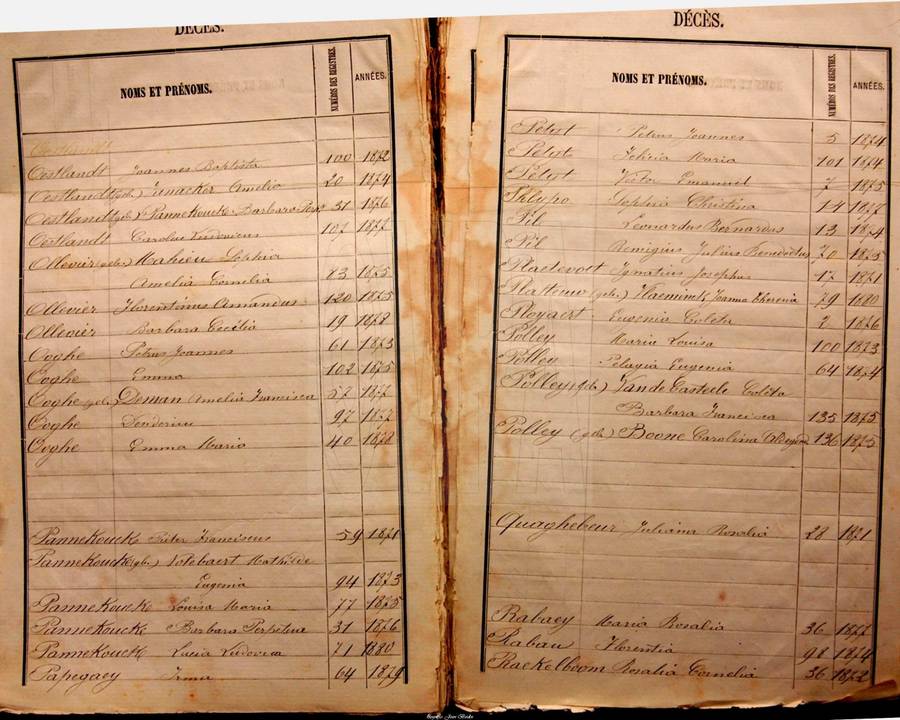 DÉCÈS.
NOMS ET PRÉNOMS. NUMÉROS DES REGISTRES. ANNÉES.
Oestlandt
Oestlandt Joannes Baptista 100 1872
Oestlandt (geh.) Amelia 20 1874
Oestlandt (geh.) Pannekoucke Barbara 31 1876
Oestlandt Carolus Ludovicus 107 1877
Ollevier (geh.) Mahieu Sophia
Amelia Cornelia 83 1875
Ollevier Florentinus Amandus 120 1875
Ollevier Barbara Cecilia 19 1878
Ooghe Petrus Joannes 61 1873
Ooghe Emma 102 1875
Ooghe (geh.) Deman Amelia Francisca 57 1877
Ooghe 97 1877
Ooghe Emma Maria 40 1878
Pannekoucke Pieter Franciscus 59 1871
Pannekoucke (geh.) Mathilde
Eugenia 94 1873
Pannekoucke Louisa Maria 77 1875
Pannekoucke Barbara Perpetua 31 1876
Pannekoucke Lucia Ludovica 71 1880
Papegaey Irma 64 1879
DÉCÈS.
NOMS ET PRÉNOMS. NUMÉROS DES REGISTRES. ANNÉES.
Petrus Joannes 5 1874
Felicia Maria 101 1874
Victor Emanuel 7 1875
Sophia Christina 14 1877
Pil Leonardus Bernardus 13 1874
Pil Remigius Julius Benedictus 70 1875
Plaetevoet Ignatius Josephus 17 1871
(geh.) Joanna Theresia 79 1880
Eugenia Coleta 2 1876
Polley Maria Louisa 100 1873
Polley Pelagia Eugenia 64 1874
Polley (geh.) Van de Casteele Coleta
Barbara Francisca 135 1875
Polley (geh.) Boone Carolina 136 1875
Quaghebeur Juliana Rosalia 28 1871
Rabaey Maria Rosalia 36 1877
Rabau Florentia 98 1874
Raekelboom Rosalia Cornelia 36 1872